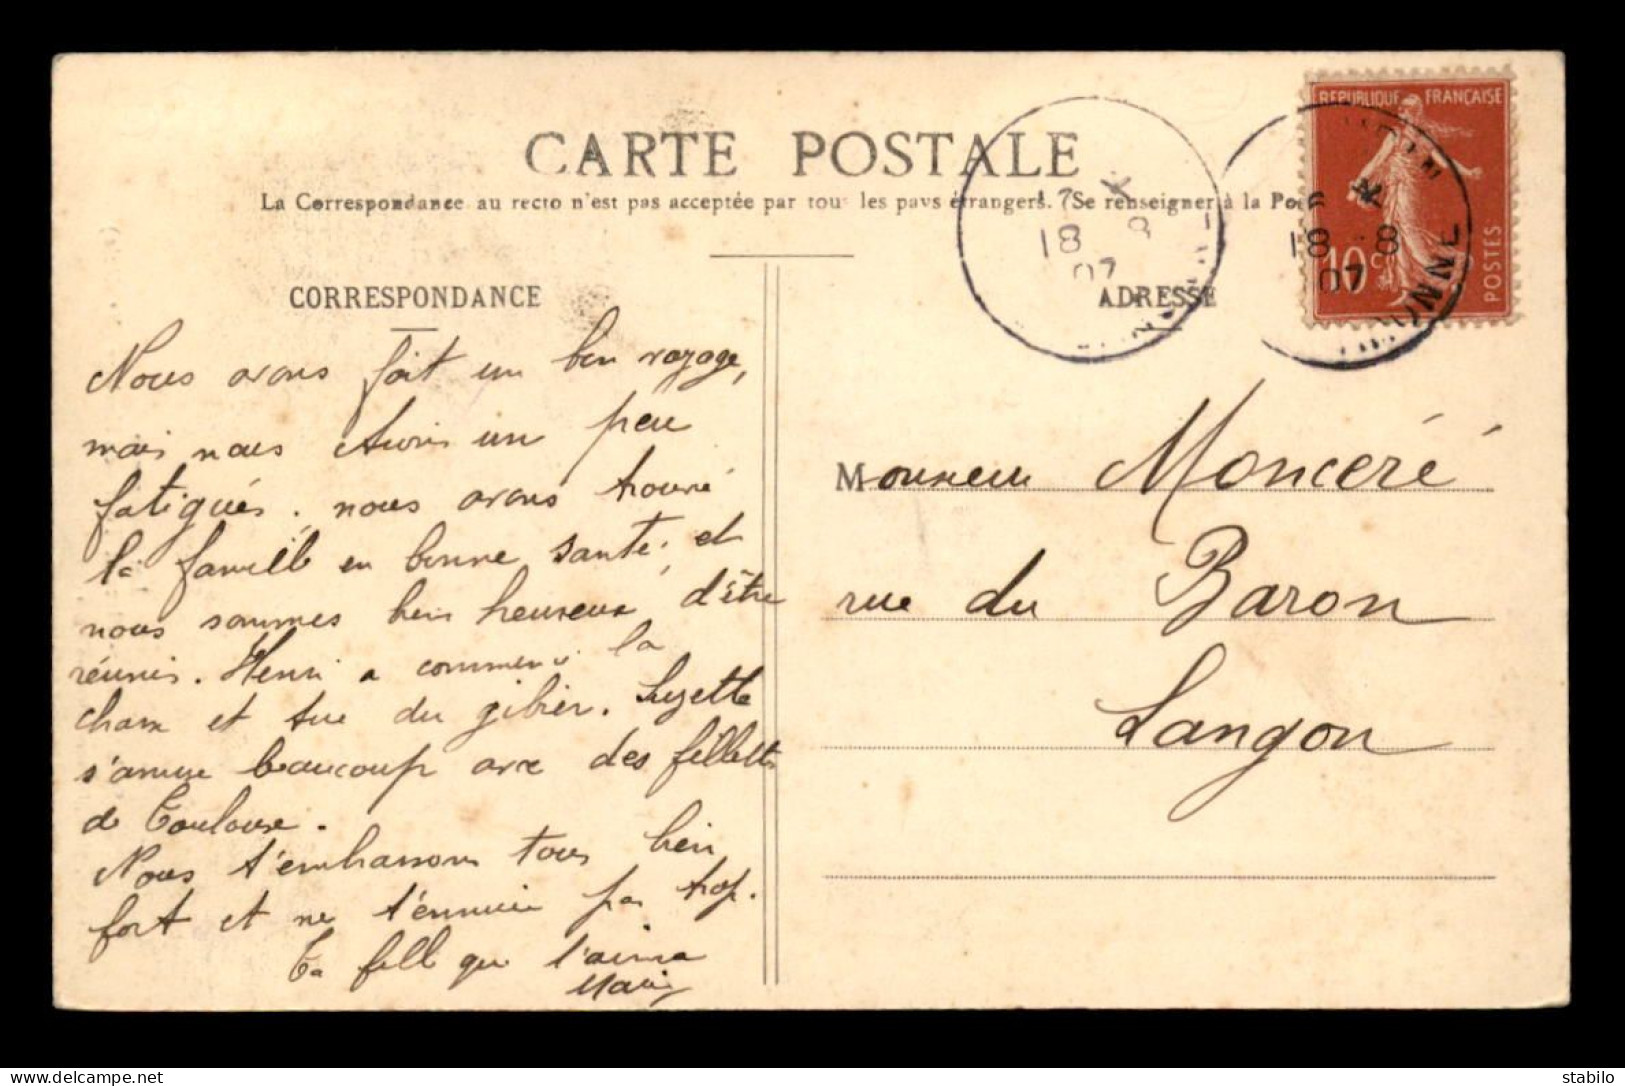 CARTE POSTALE
La Correspondance au recto n'est pas acceptée par tous les pays étrangers. Se renseigner à la Poste
CORRESPONDANCE
ADRESSE
REPUBLIQUE FRANÇAISE
10 c
POSTES
18 8
07
18 8
07
Nous avons fait un bon voyage,
mais nous étions un peu
fatigués. nous avons trouvé
la famille en bonne santé, et
nous sommes bien heureux d'être
réunis. Henri a commencé la
chasse et tue du gibier. Suzette
s'amuse beaucoup avec des fillettes
de Toulouse.
Nous t'embrassons tous bien
fort et ne t'ennuie pas trop.
Ta fille qui t'aime
Marie
Monsieur Monceré
rue du Baron
Langon
delcampe.net
stabilo